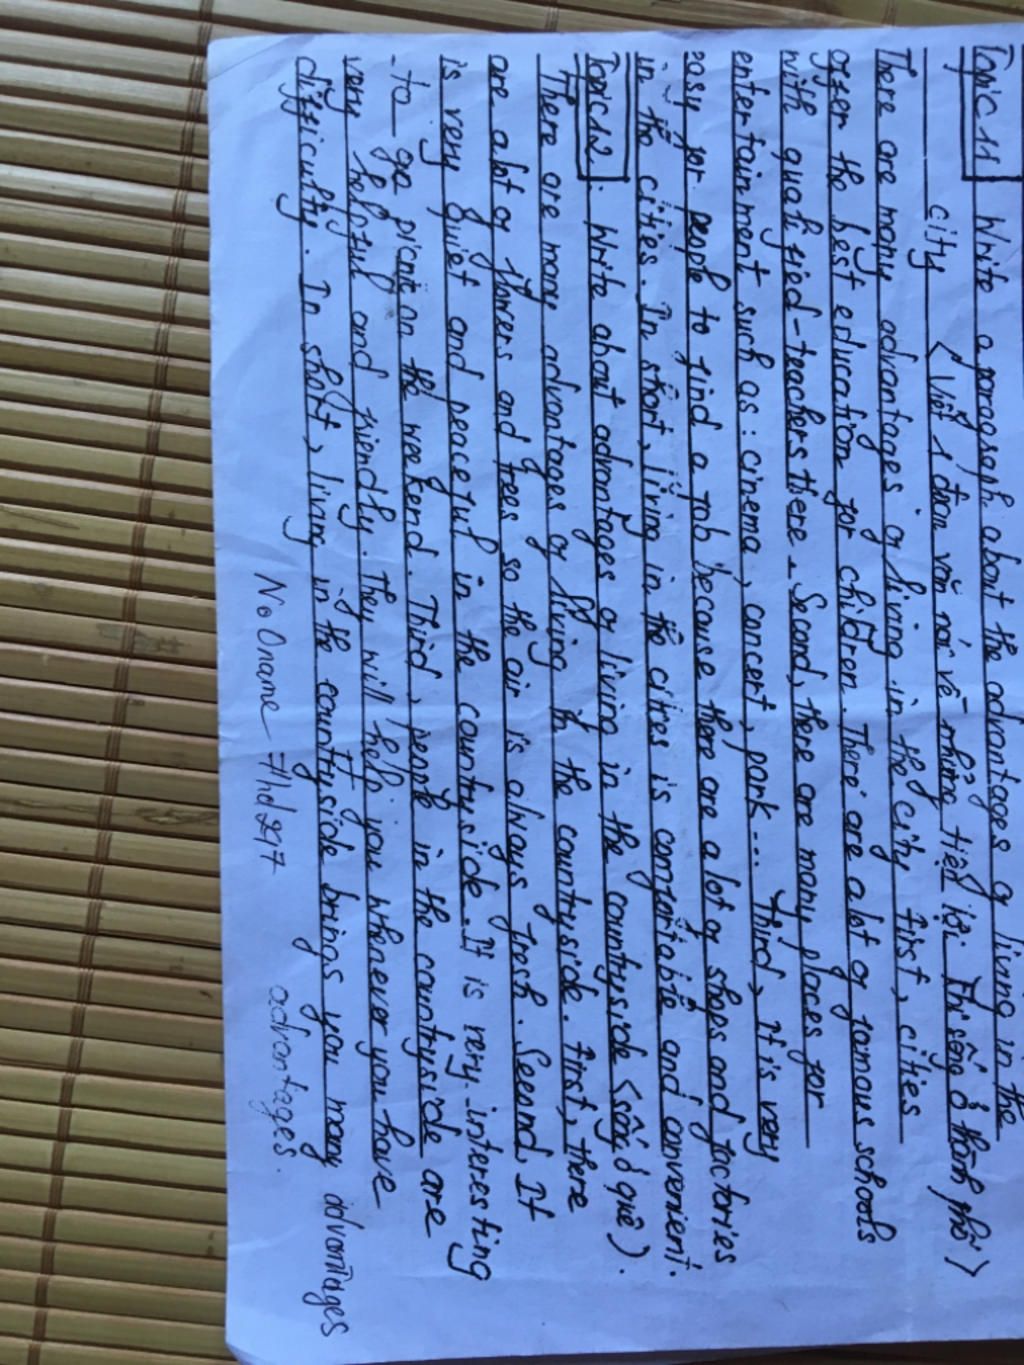 Topic 11 Write a paragraph about the advantages of living in the
city < Viết 1 đoạn văn nói về những tiện lợi Thi sống ở thành phố >
There are many advantages of living in the city first, cities
offer the best education for children. There are a lot of famous schools
with qualified-teachers there. Second, there are many places for
entertainment such as: cinema, concert, park... Third, it is very
easy for people to find a job because there are a lot of shops and factories
in the cities. In short, living in the cities is comfortable and convenient.
Topic 12. Write about advantages of living in the countryside <sống ở quê>.
There are many advantages of living in the countryside. First, there
are a lot of flowers and trees so the air is always fresh. Second, It
is very quiet and peaceful in the countryside. It is very interesting
to go picnic on the weekend. Third, people in the countryside are
very helpful and friendly. They will help you whenever you have
difficulty. In short, living in the countryside brings you many advantages
advantages.
No Oname